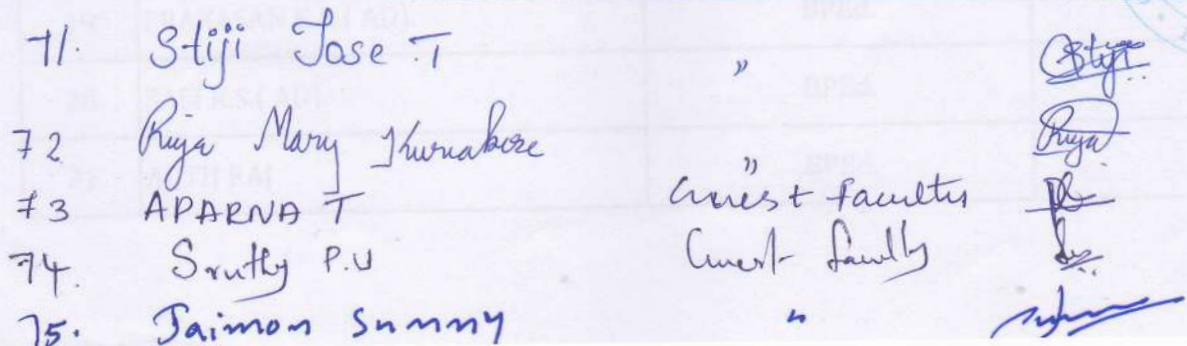 71. Stiji Jose T " Stiji
72 Riya Mary Kuriakose " Riya
73 APARNA T Guest Faculties
74. Sruthy P.U Guest Faculty
75. Jaimon Sunny "
BPEd.
BPEd.
BPEd.